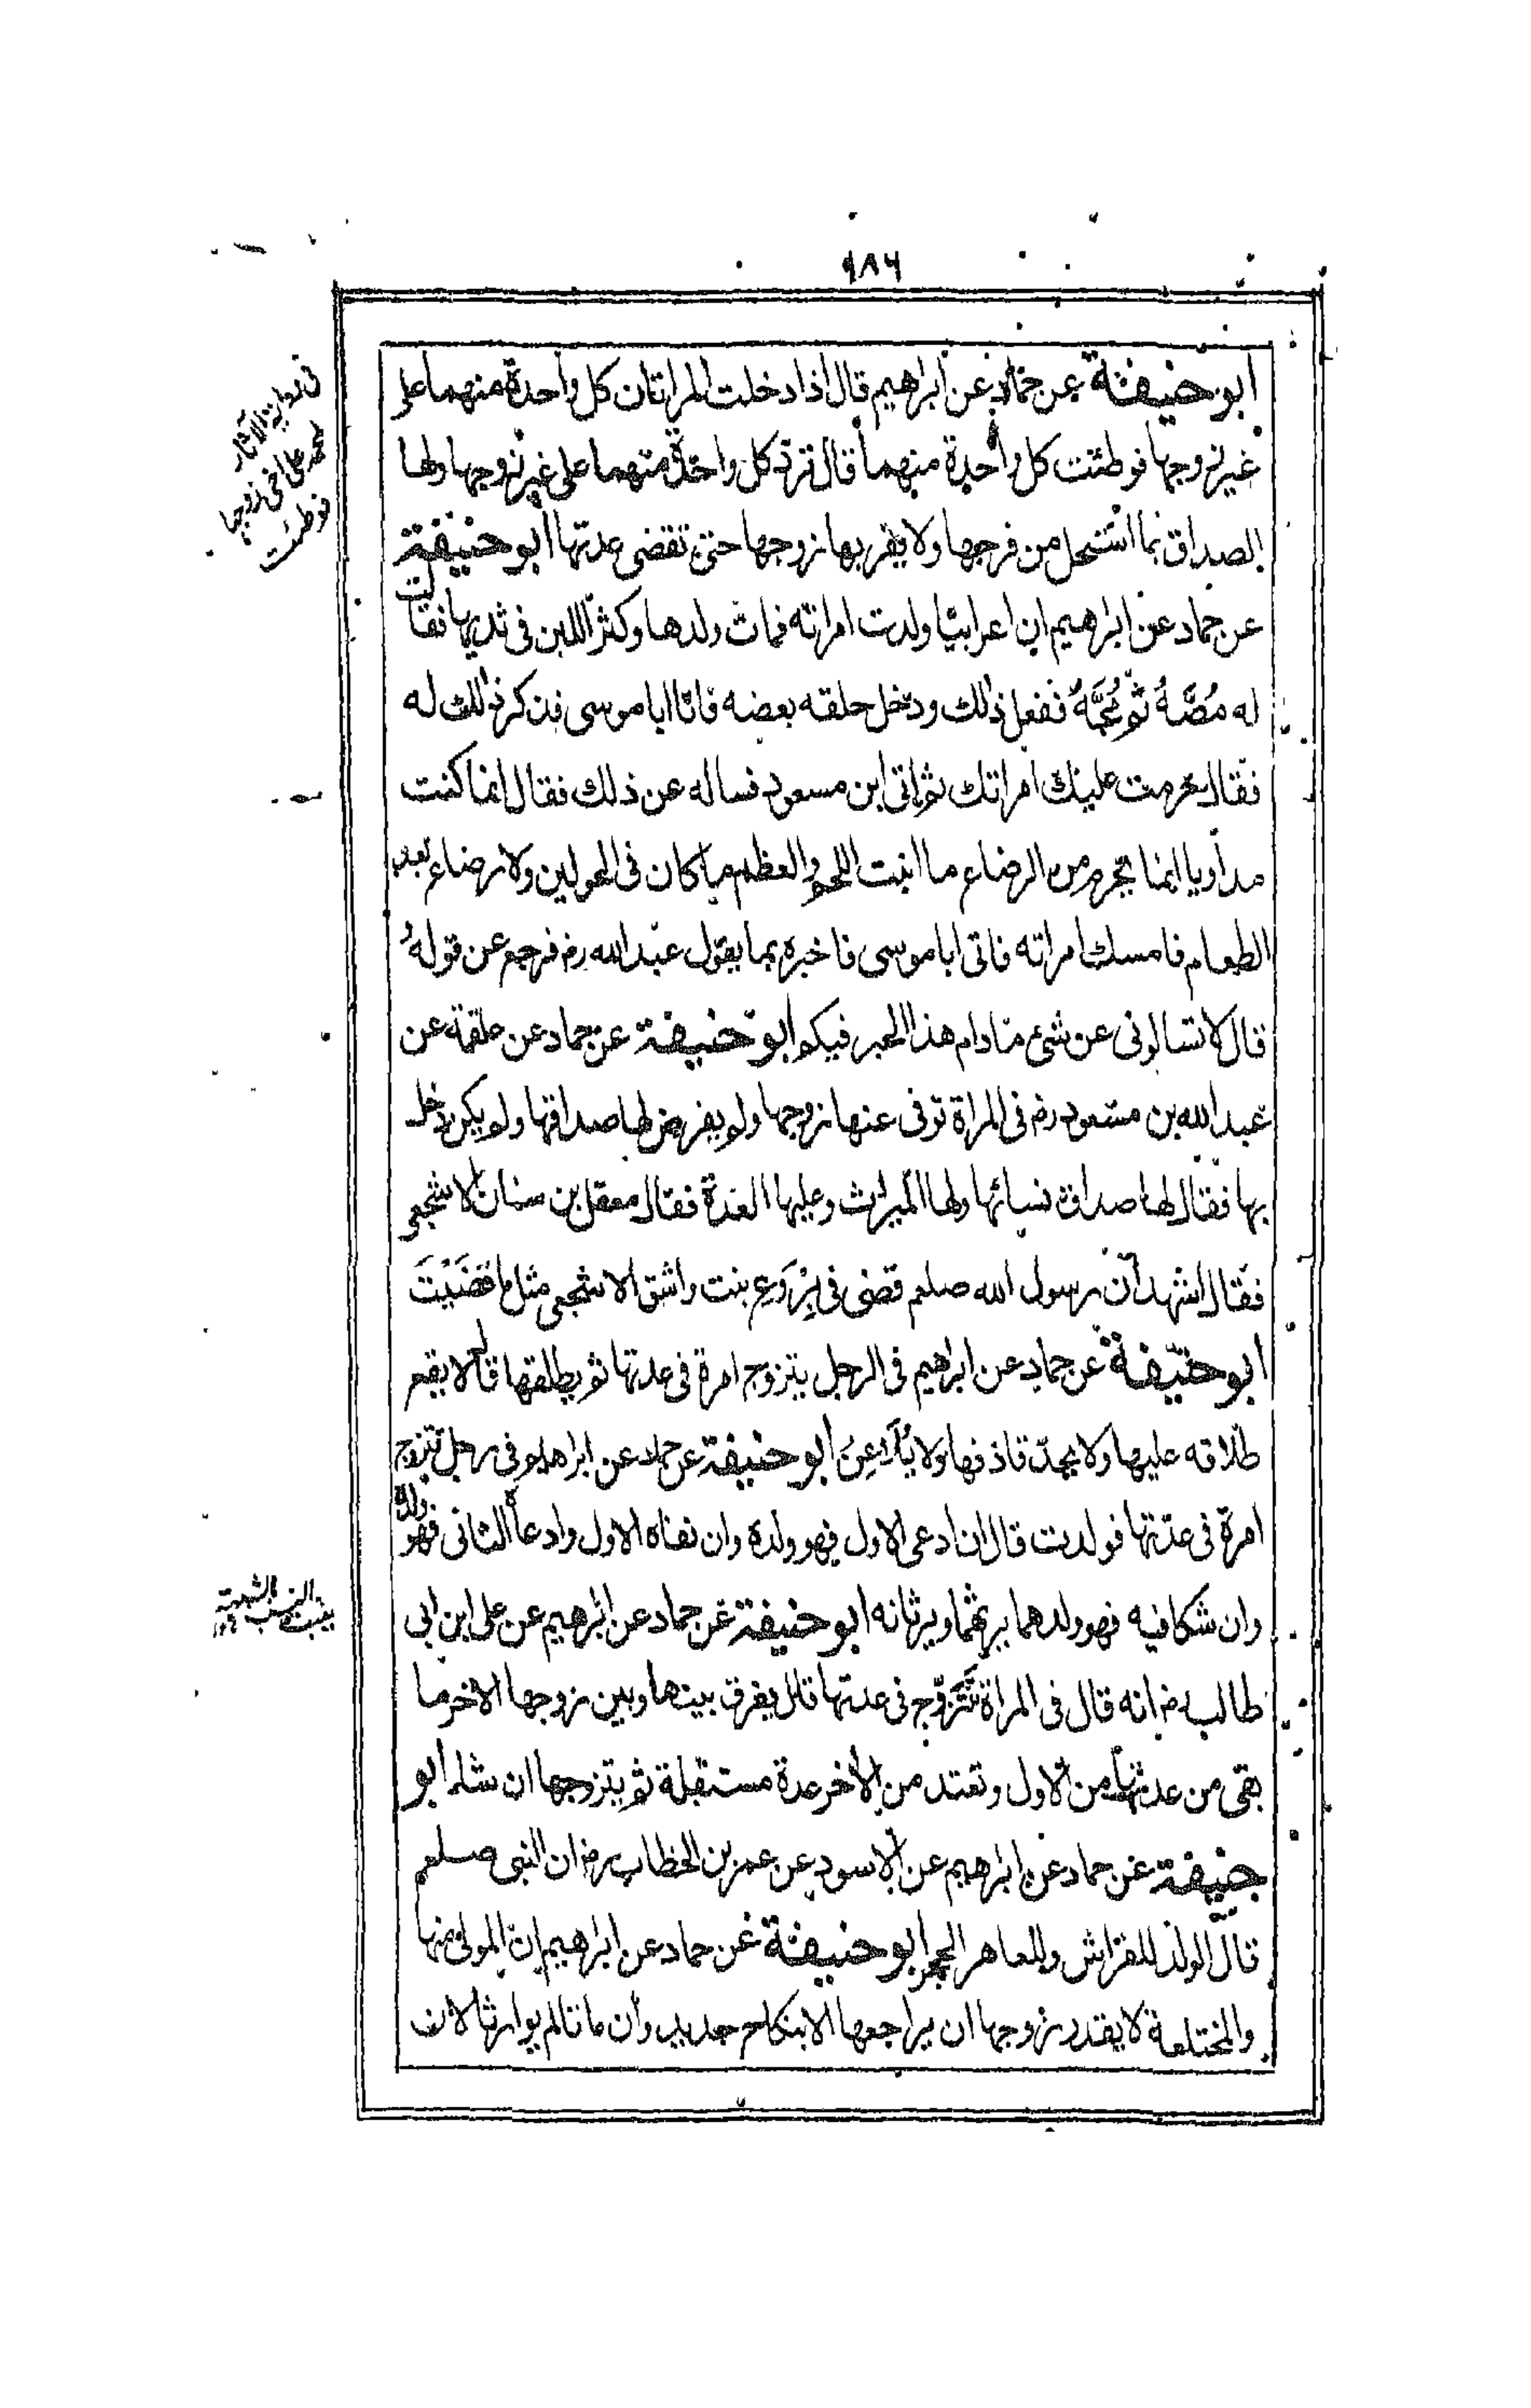 ١٨٦
ابو حنيفة عن حماد عن ابراهيم قال اذا دخلت المراتان كل واحدة منهما على
غير زوجها فوطئت كل واحدة منهما قال ترد كل واحدة منهما على غير زوجها ولها
الصداق بما استحل من فرجها ولا يقربها زوجها حتى تقضى عدتها ابو حنيفة
عن حماد عن ابراهيم ان اعرابيا ولدت امراته فمات ولدها وكثر اللبن فى ثديها فقالت
له مُصَّهُ ثم مُجَّهُ ففعل ذلك ودخل حلقه بعضه فاتا ابا موسى فذكر ذلك له
فقال حرمت عليك امراتك ثم اتى ابن مسعود فساله عن ذلك فقال انما كنت
مداويا انما يحرم من الرضاع ما انبت اللحم والعظم ما كان فى الحولين ولا رضاع بعد
الطعام فامسك امراته فاتى ابا موسى فاخبره بما يقول عبد الله رض فرجع عن قوله و
قال لا تسالونى عن شئ ما دام هذا الحبر فيكم ابو حنيفة عن حماد عن علقمة عن
عبد الله بن مسعود رض فى المراة توفى عنها زوجها ولم يفرض لها صداقها ولم يكن دخل
بها فقال لها صداق نسائها ولها الميراث وعليها العدة فقال معقل بن سنان الاشجعى
فقال اشهد ان رسول الله صلعم قضى فى بِرْوَع بنت واشق الاشجعى مثل ما قضَيْتَ
ابو حنيفة عن حماد عن ابراهيم فى الرجل يتزوج امرة فى عدتها ثم يطلقها قال لا يقع
طلاقه عليها ولا يحد قاذفها ولا يُلاعِن ابو حنيفة عن حماد عن ابراهيم فى رجل تزوج
امرة فى عدتها فولدت قال ان ادعى الاول فهو ولده وان نفاه الاول وادعا الثانى فهو ولده
وان شكا فيه فهو ولدهما يرثهما ويرثانه ابو حنيفة عن حماد عن ابرهيم عن على ابن ابى
طالب رض انه قال فى المراة تَتَزَوَّج فى عدتها قال يفرق بينها وبين زوجها الاخر ما
بقى من عدتها من الاول وتعتد من الاخر عدة مستقبلة ثم يتزوجها ان شاء ابو
حنيفة عن حماد عن ابرهيم عن الاسود عن عمر بن الخطاب رض ان النبى صلعم
قال الولد للفراش وللعاهر الحجر ابو حنيفة عن حماد عن ابرهيم ان المولى منها
والمختلعة لا يقدر زوجها ان يراجعها الا بنكاح جديد وان ماتا لم يوارثا لان
فى رواية الآثار
لمحمد على اخى زوجها
فوطئت